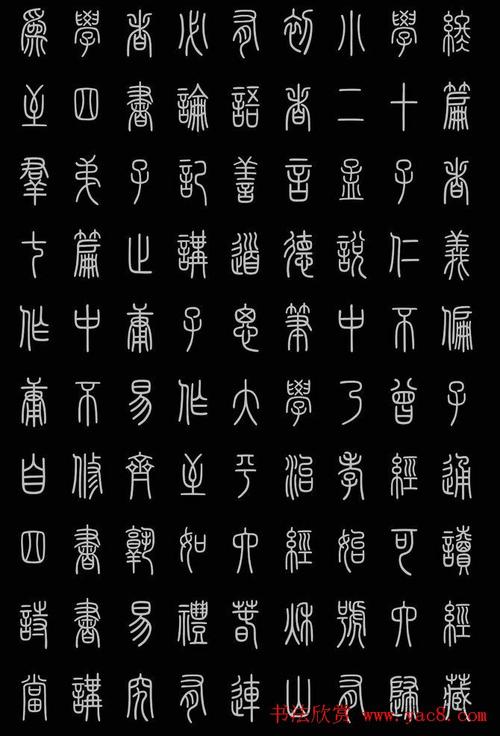 為學者必有初小學終
至四書論語者二十篇
羣弟子記善言孟子者
七篇止講道德說仁義
作中庸子思筆中不偏
庸不易作大學乃曾子
自修齊至平治孝經通
四書熟如六經始可讀
詩書易禮春秋號六經
當講究有連山有歸藏
书法欣赏 www.yac8.com